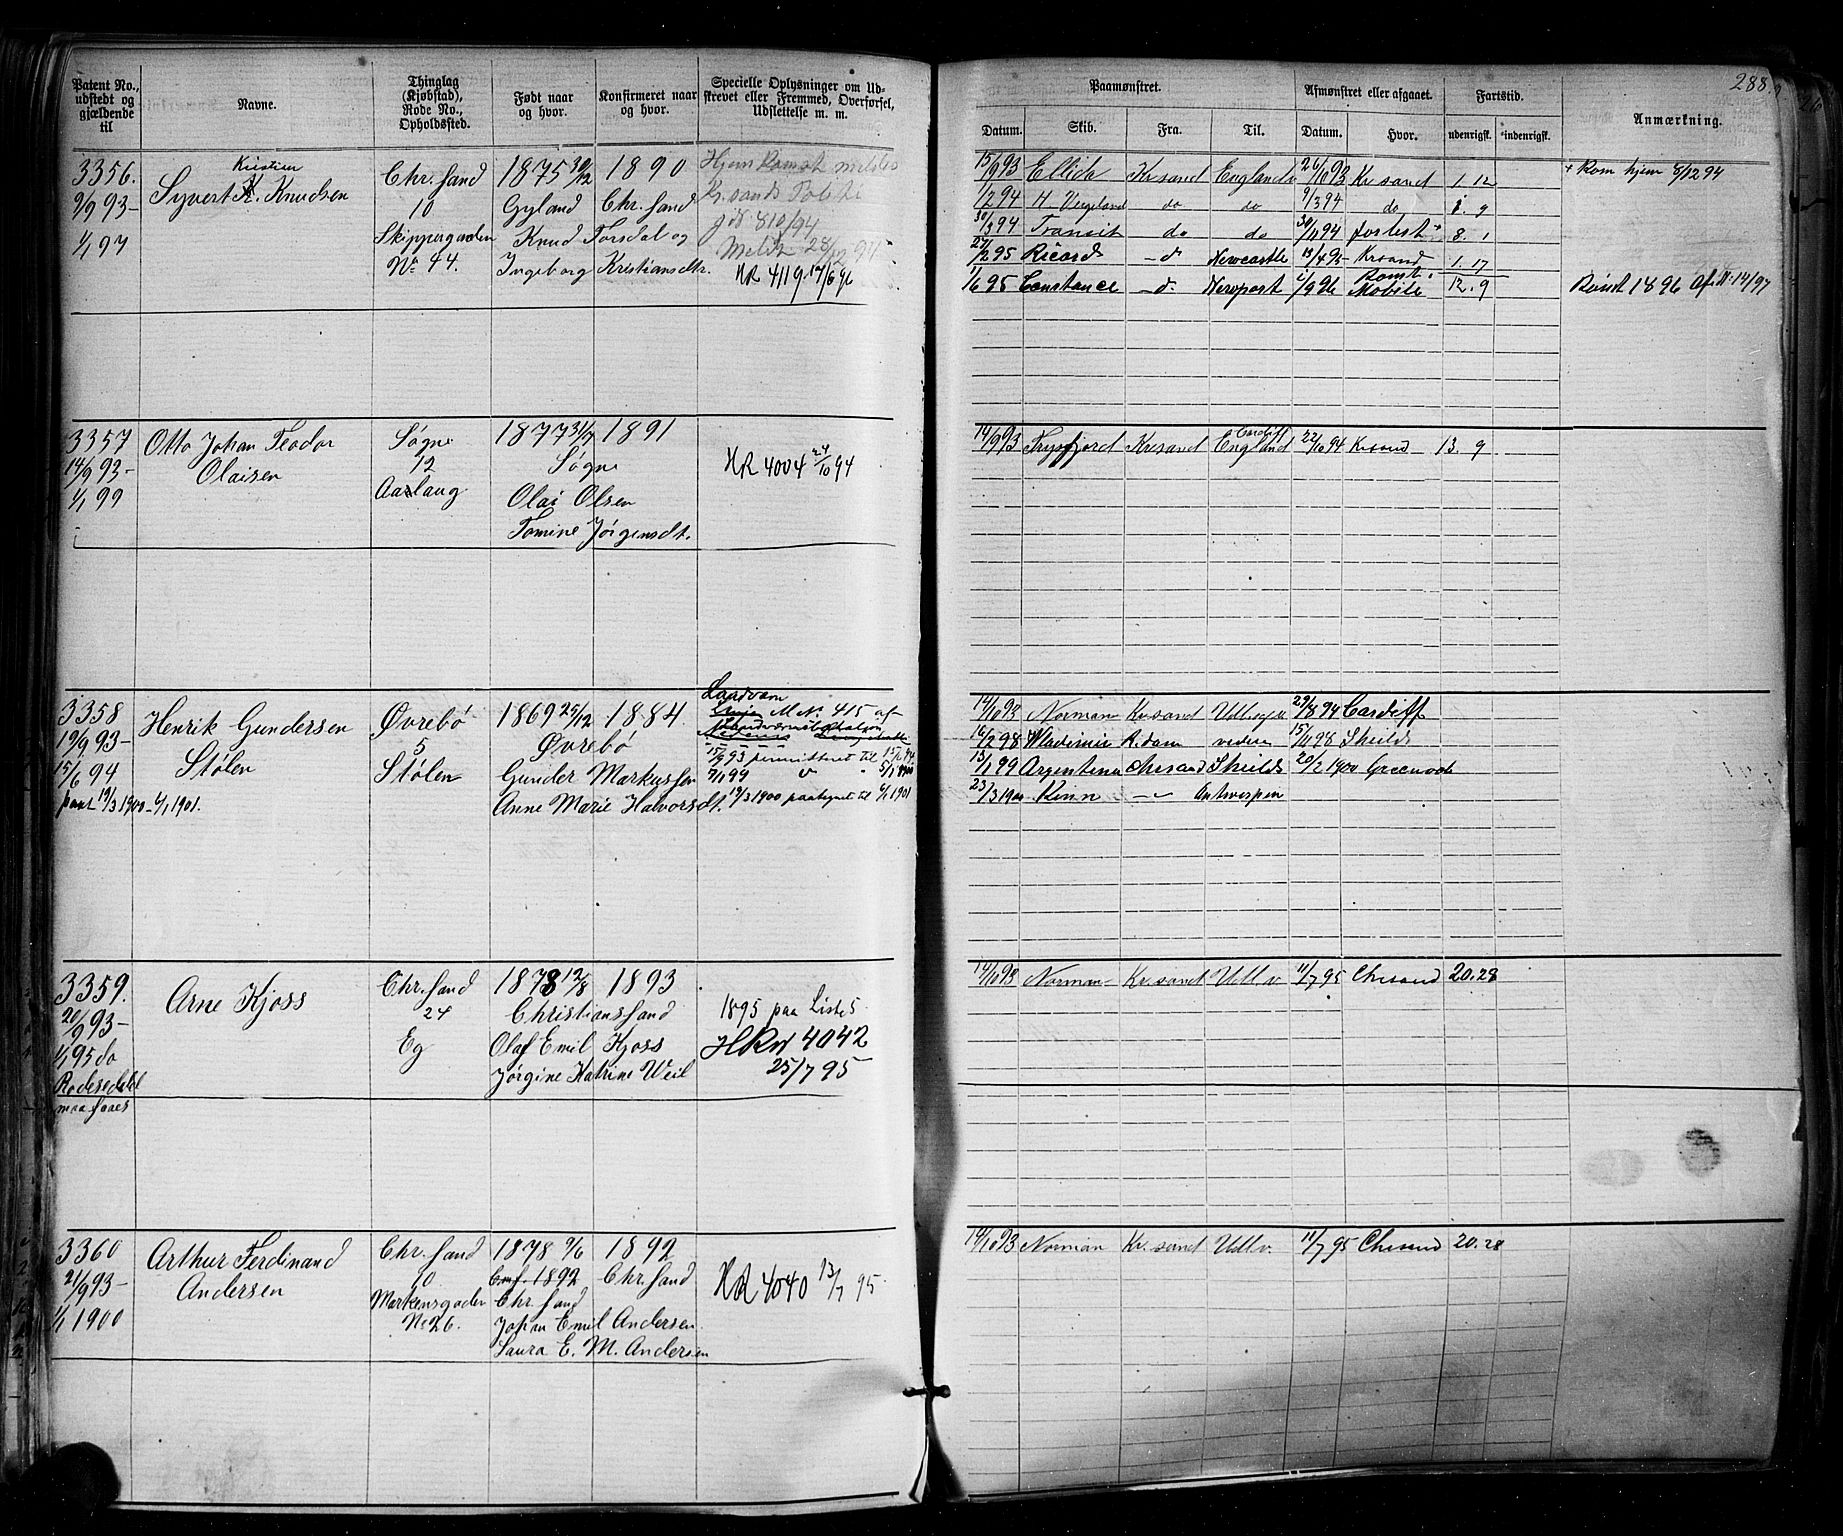 288.
Patent No., udstedt og gjældende til
Navne.
Thinglag (Kjøbstad), Rode No., Opholdssted.
Født naar og hvor.
Konfirmeret naar og hvor.
Specielle Oplysninger om Udskrevet eller Fremmed, Overførsel, Udslettelse m. m.
Paamønstret.
Afmønstret eller afgaaet.
Fartstid.
Anmærkning.
Datum.
Skib.
Fra.
Til.
Datum.
Hvor.
udenrigsk.
indenrigsk.
3356.
9/9 93-
1/1 97
Kristian
Syvert K. Knudsen
Chr.sand
10
Skippergaden
No 44.
1875 30/12
Gyland
1890
Chr.sand
Knud Torsdal og
Ingeborg Kristiansdtr.
HR 4119 17/6 96
15/9 93 Ellida Krsand England 26/10 93 Krsand 1. 12
+ Kom hjem 8/12 94
1/2 94 H Vergeland do do 9/3 94 do 1. 9
30/3 94 Transit do do 30/11 94 forlist+ 8. 1
27/2 95 Ricard -d- Newcastle 13/4 95 Krsand 1. 17
1/6 95 Constance -d- Newport 1/9 96 Rømt i Mobile 12. 9
Rømt 1896
3357
14/9 93-
1/1 99
Otto Johan Teodor
Olaisen
Søgne
12
Aaslaug
1877 31/7 1891
Søgne
Olai Olsen
Tomine Jørgensdt.
HR 4004 24/10 94
14/9 93 Trysfjord Krsand Cardiff England 22/10 94 Krsand 13. 9
3358
19/9 93-
15/6 94
paat 19/3 1900 - 1/1 1901.
Henrik Gundersen
Stølen
Øvrebø
5
Stølen
1869 25/12 1884
Øvrebø
Gunder Markussen
Anne Marie Halvorsdt.
Landværn
M No. 415 af
15/9 93 permitteret til 15/6 94
19/3 1900 paategnet til 1/1 1901
14/10 93 Norman Krsand 29/8 94 Cardiff
16/2 98 Wladimir A.dam videre 15/11 98 Sheilds
13/1 99 Argentina Chrsand Sheilds 20/2 1900 Greenock
23/3 1900 Kinn Antwerpen
3359.
20/9 93-
1/1 95 do
Arne Kjoss
Chr.sand
24
Eg
1878 12/8 1893
Christianssand
Olaf Emil Kjoss
Jørgine Katrine Weil
1895 paa Liste 5
HR No 4042
25/7 95
14/10 93 Norman Krsand Udl v 11/7 95 Chrsand 20.28
3360
21/9 93-
1/1 1900
Arthur Ferdinand
Andersen
Chr.sand
10
Markensgaden
No 26.
1878 9/6 1892
Conf. 1892 Chr.sand
Chr.sand
Johan Emil Andersen
Laura E. M. Andersen
HR 4040 13/7 95
14/10 93 Norman Kr.sand Udl v. 11/7 95 Chrsand 20.28